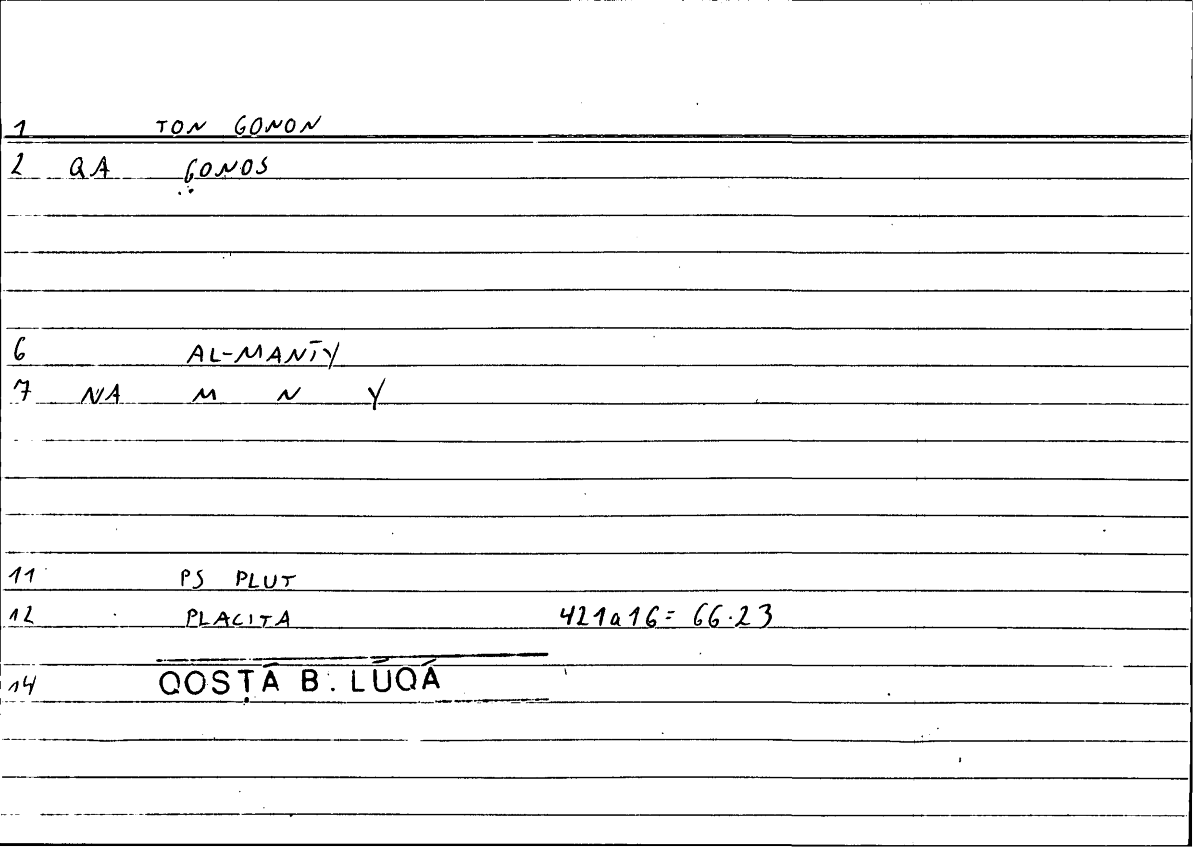 1 TON GONON
2 QA GONOS
6 AL-MANĪY
7 NA M N Y
11 PS PLUT
12 PLACITA 421a16= 66.23
14 QOSṬĀ B. LŪQĀ